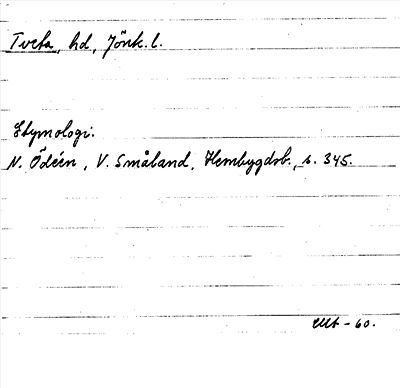 Tveta, hd, Jönk. l.
Etymologi.
N. Ödéen, V. Småland, Hembygdsb., s. 345.
-60.